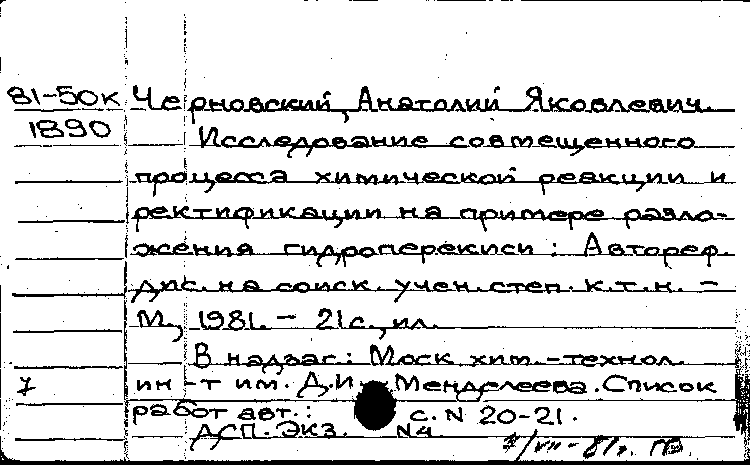 81-50к Черновский, Анатолий Яковлевич.
1890 Исследование совмещенного
процесса химической реакции и
ректификации на примере разло-
жения гидроперекиси : Автореф.
дис. на соиск. учен. степ. к.т.н. –
М., 1981. – 21 с., ил.
В надзаг.: Моск. хим.-технол.
7 ин-т им. Д.И. Менделеева. Список
работ авт.: с. N 20-21.
ДСП. Экз. N4.
7/VII-81г.